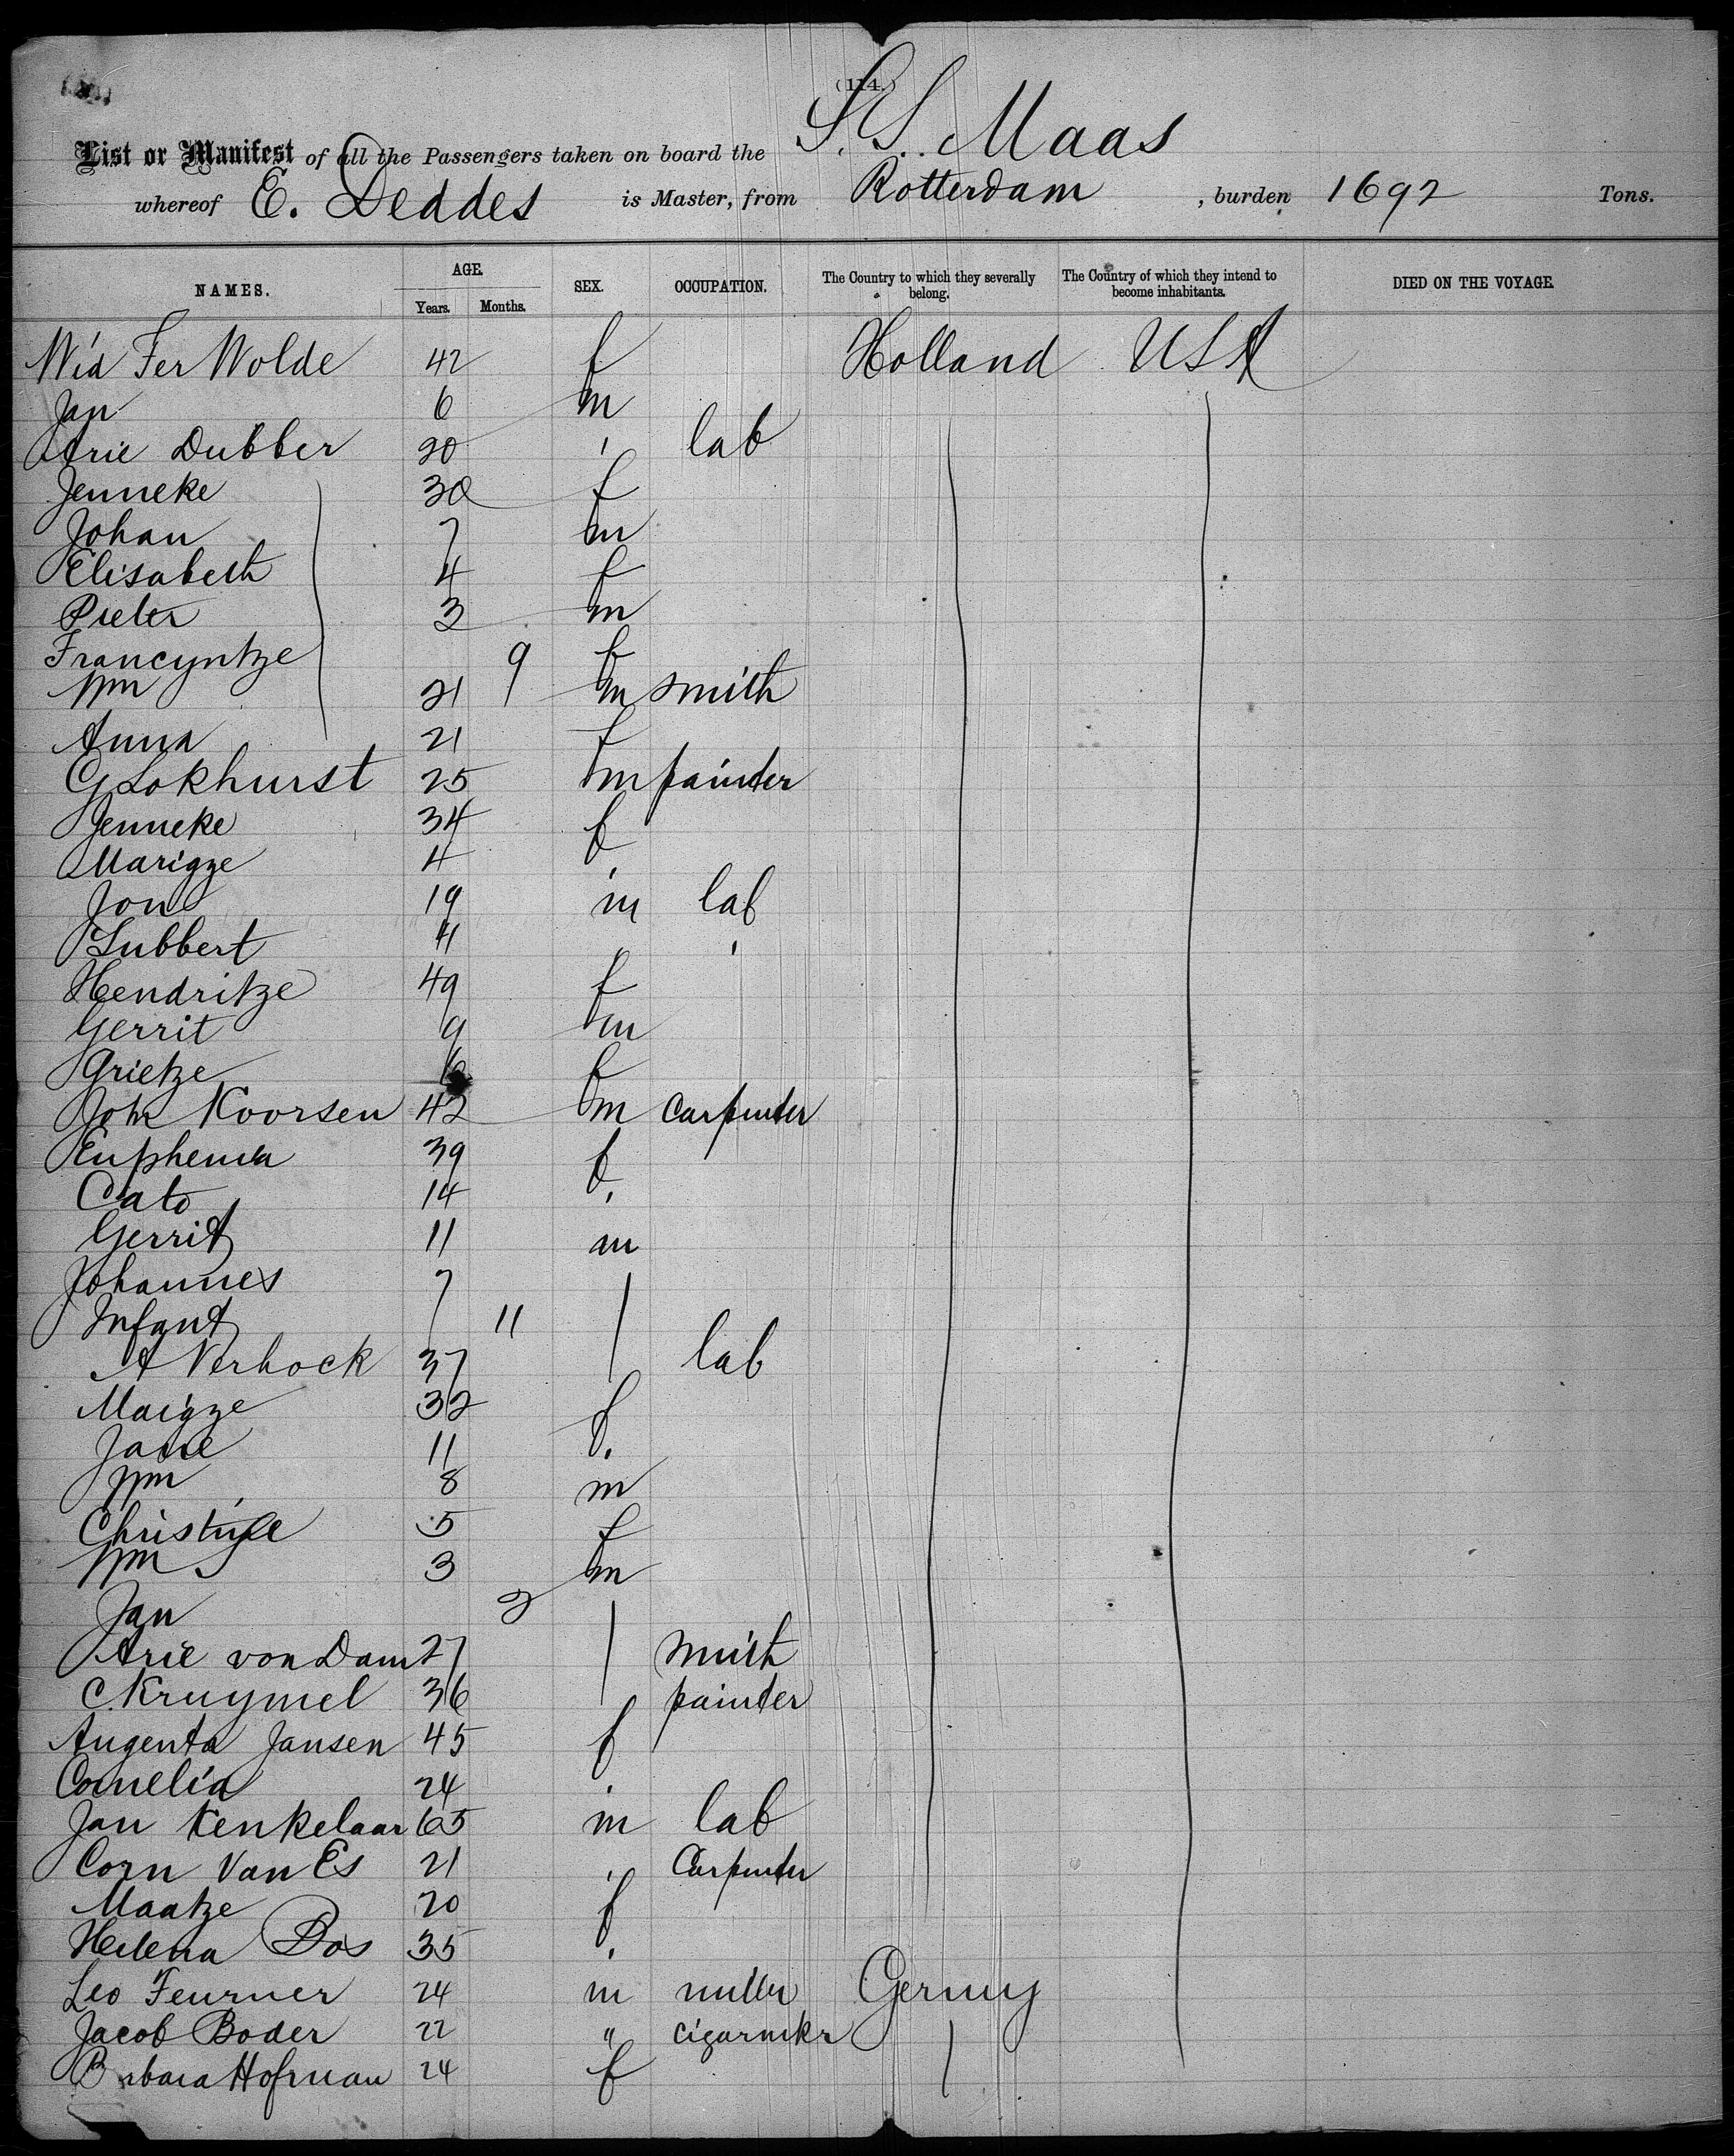 (114.)
List or Manifest of all the Passengers taken on board the S.S. Maas
whereof E. Deddes is Master, from Rotterdam , burden 1692 Tons.
NAMES. AGE. Years. Months. SEX. OCCUPATION. The Country to which they severally belong. The Country of which they intend to become inhabitants. DIED ON THE VOYAGE.
Wid Ter Wolde 42 f Holland USA
Jan 6 m
Arie Dubber 30 ' lab
Jenneke 30 f
Johan 7 m
Elisabeth 4 f
Pieter 3 m
Francyntze 9 f
Wm 21 m smith
Anna 21 f
G Lokhurst 25 m painter
Jenneke 34 f
Marigze 4
Jon 19 m lab
Lubbert 11 " '
Hendritze 49 f
Gerrit 9 m
Grietze 6 f
Joh Koorsen 42 m carpenter
Euphemia 39 f
Cato 14 '
Gerrit 11 m
Johannes 7
Infant 11
A Verhock 37 lab
Maigze 32 f
Jane 11 .
Wm 8 m
Christige 5 f
Wm 3 m
Jan 3
Arie von Dam 27 smith
C. Kruymel 36 painter
Augenta Jansen 45 f
Cornelia 24 '
Jan Kenkelaar 65 m lab
Corn Van Es 21 ' Carpenter
Maatze 20 f
Helena Bos 35 '
Leo Feurner 24 m miller Germy
Jacob Boder 22 " cigarmkr
Barbara Hofman 24 f